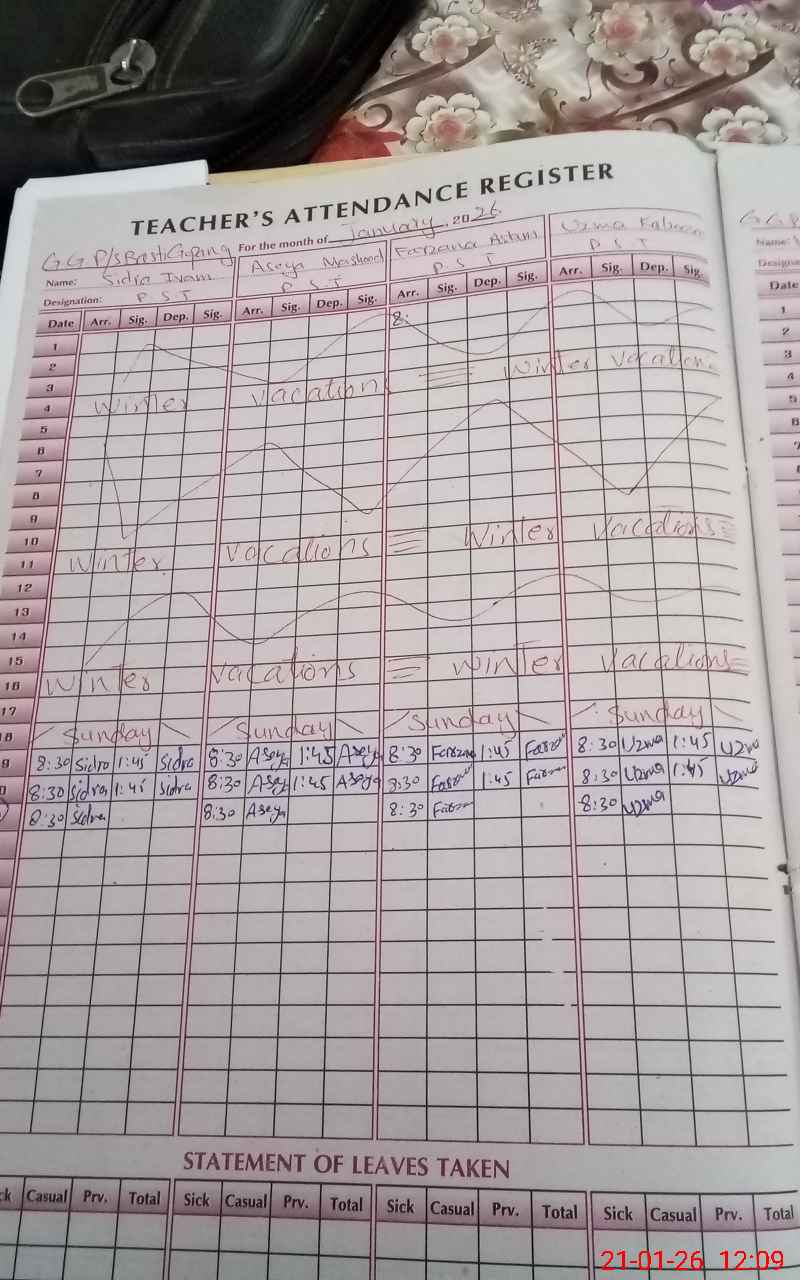 TEACHER'S ATTENDANCE REGISTER
GGP/S Basti Gopang For the month of January, 2026.
Name: Sidra Iram Aseya Mashood Farzana Aslam Uzma
Designation: P S T P S T P S T P S T
Date Arr. Sig. Dep. Sig. Arr. Sig. Dep. Sig. Arr. Sig. Dep. Sig. Arr. Sig. Dep. Sig.
1 8:
2
3
4 Winter vacation Winter vacation
5
6
7
8
9
10
11 Winter vacations Winter vacations
12
13
14
15
16 Winter vacations Winter vacations
17
18 Sunday Sunday Sunday Sunday
9 8:30 Sidra 1:45 Sidra 8:30 Aseya 1:45 Aseya 8:30 Farzana 1:45 8:30 Uzma 1:45 Uzma
0 8:30 Sidra 1:45 Sidra 8:30 Aseya 1:45 Aseya 8:30 1:45 8:30 Uzma 1:45 Uzma
8:30 Sidra 8:30 Aseya 8:30 8:30 Uzma
STATEMENT OF LEAVES TAKEN
ck Casual Prv. Total Sick Casual Prv. Total Sick Casual Prv. Total Sick Casual Prv. Total
GGP
Name:
Designa
Date
1
2
3
4
5
6
7
8
21-01-26 12:09